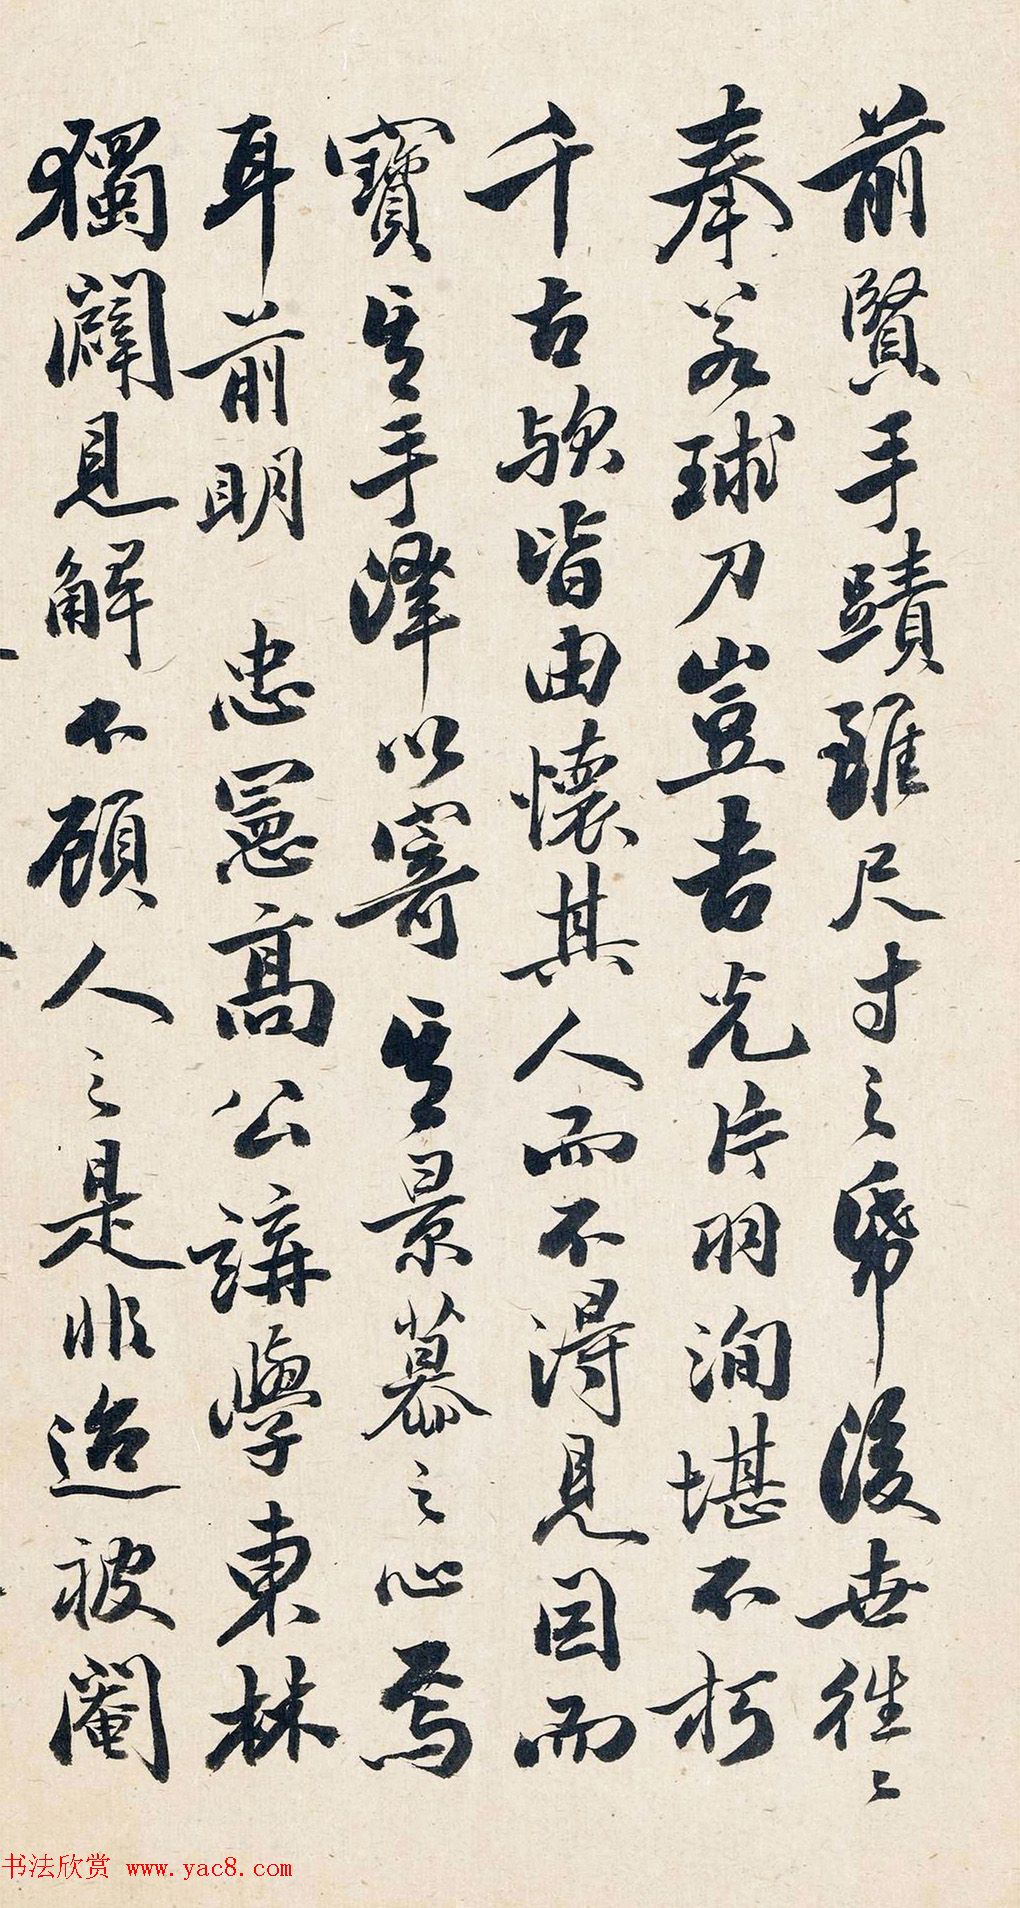 前賢手蹟雖尺寸之帋後世往々
奉若球刀豈吉光片羽洵堪不朽
千古歟皆由懷其人而不得見因而
寶其手澤以寄其景慕之心焉
耳前明 忠憲高公講學東林
獨闢見解不顧人之是非迨被閹
书法欣赏 www.yac8.com